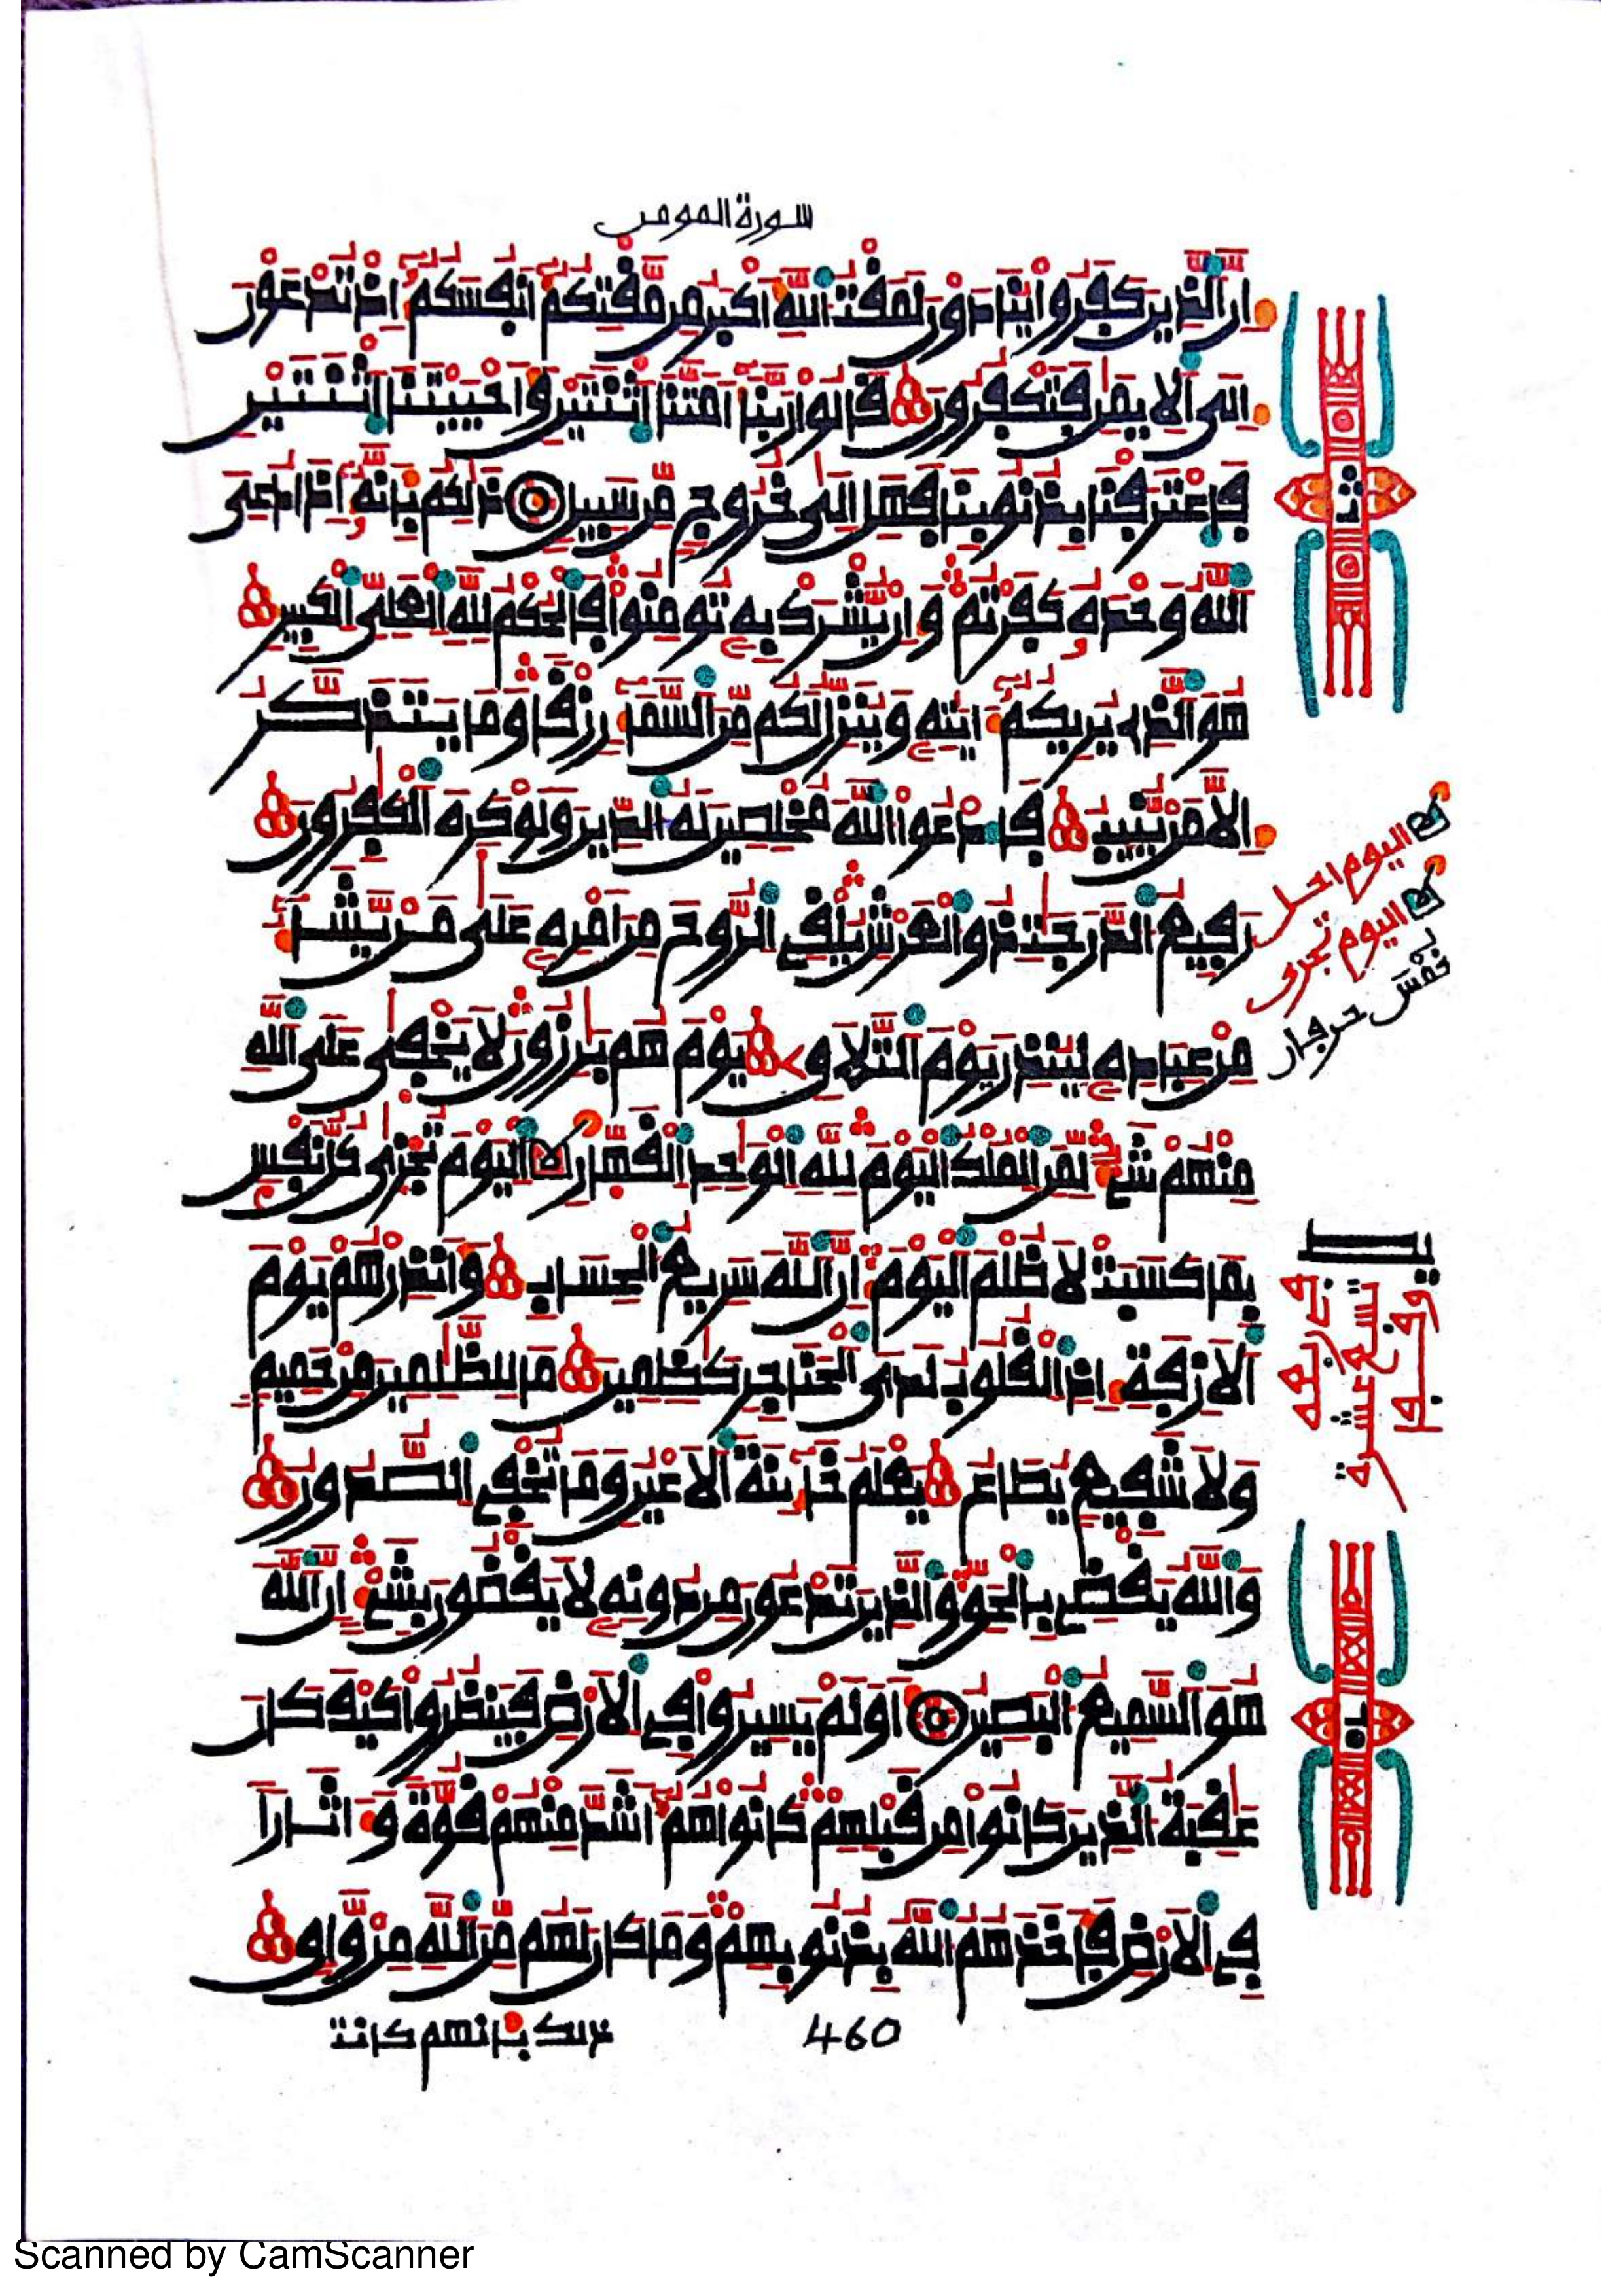 سورة المومن
إن الذين كفروا ينادون لمقت الله أكبر من مقتكم أنفسكم إذ تدعون
إلى الايمن فتكفرون قالوا ربنا أمتنا اثنتين وأحييتنا اثنتين
فاعترفنا بذنوبنا فهل إلى خروج من سبيل ذلكم بأنه إذا دعي
الله وحده كفرتم وإن يشرك به تومنوا فالحكم لله العلي الكبير
هو الذي يريكم ءايته وينزل لكم من السماء رزقا وما يتذكر
إلا من ينيب فادعوا الله مخلصين له الدين ولو كره الكفرون
رفيع الدرجت ذو العرش يلقي الروح من أمره على من يشاء
من عباده لينذر يوم التلاق يوم هم برزون لا يخفى على الله
منهم شيء لمن الملك اليوم لله الوحد القهار اليوم تجزى كل نفس
بما كسبت لا ظلم اليوم إن الله سريع الحساب وأنذرهم يوم
الازفة إذ القلوب لدى الحناجر كظمين ما للظلمين من حميم
ولا شفيع يطاع يعلم خائنة الاعين وما تخفي الصدور
والله يقضي بالحق والذين تدعون من دونه لا يقضون بشيء إن الله
هو السميع البصير أولم يسيروا في الارض فينظروا كيف كان
عقبة الذين كانوا من قبلهم كانوا هم أشد منهم قوة وءاثارا
في الارض فأخذهم الله بذنوبهم وما كان لهم من الله من واق
ذلك بانهم كانت
460
اليوم احل
اليوم تجزى
نفس
Scanned by CamScanner